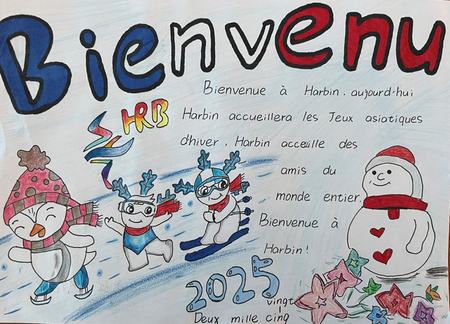 Bienvenu
Bienvenue à Harbin. aujourd'hui
HRB
Harbin accueillera les Jeux asiatiques
d'hiver. Harbin acceille des
amis du
monde entier.
Bienvenue à
Harbin!
2025
vingt
Deux mille cinq